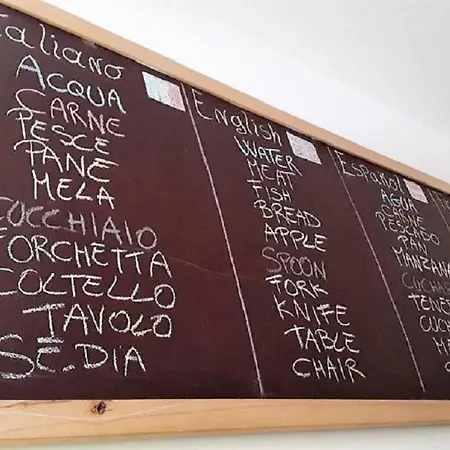 Italiano
ACQUA
CARNE
PESCE
PANE
MELA
CUCCHIAIO
FORCHETTA
COLTELLO
TAVOLO
SEDIA
English
WATER
MEAT
FISH
BREAD
APPLE
SPOON
FORK
KNIFE
TABLE
CHAIR
Español
AGUA
CARNE
PESCADO
PAN
MANZANA
CUCHAR
TENE
CUCH